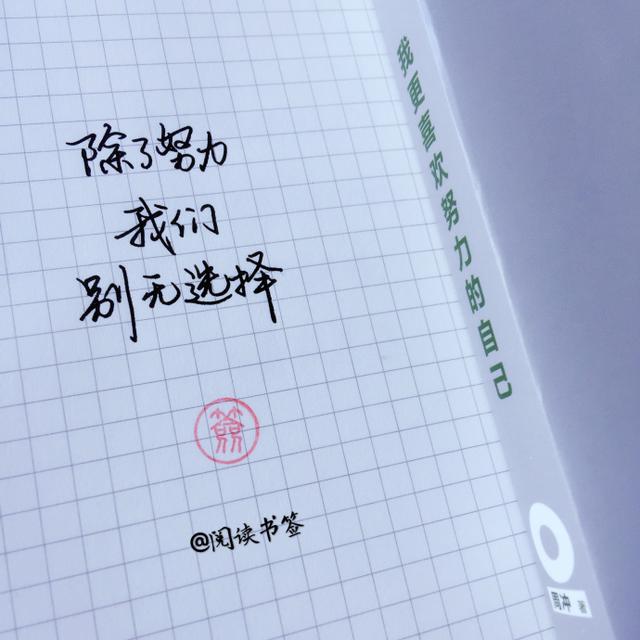 除了努力
我们
别无选择
@阅读书签
我更喜欢努力的自己
周冲 著